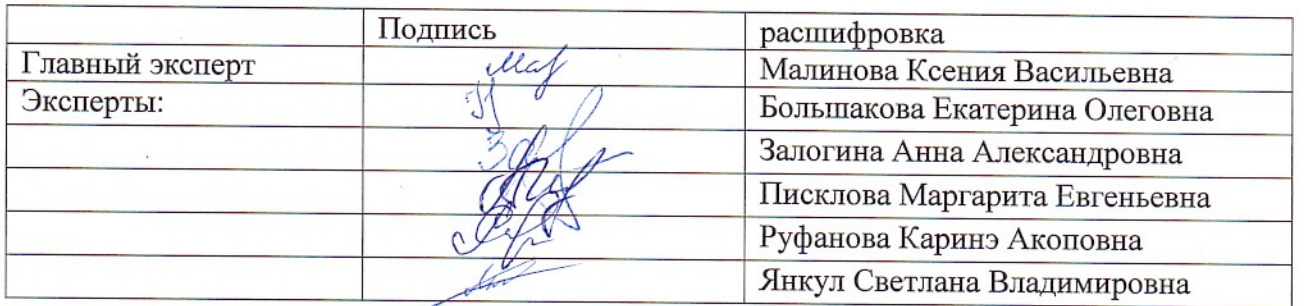 Подпись расшифровка
Главный эксперт Малинова Ксения Васильевна
Эксперты: Большакова Екатерина Олеговна
Залогина Анна Александровна
Писклова Маргарита Евгеньевна
Руфанова Каринэ Акоповна
Янкул Светлана Владимировна